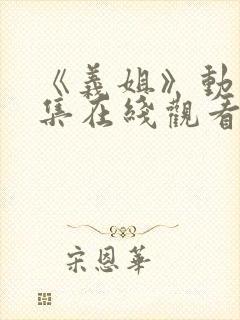 《義姐》動
集在綫觀看
宋恩華